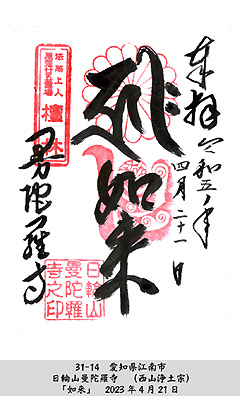 奉拝
令和五年
四月二十一日
如来
曼陀羅寺
法然上人
檀林
日輪山
曼陀羅
寺之印
31-14 愛知県江南市
日輪山曼陀羅寺 （西山浄土宗）
「如来」 2023年4月21日